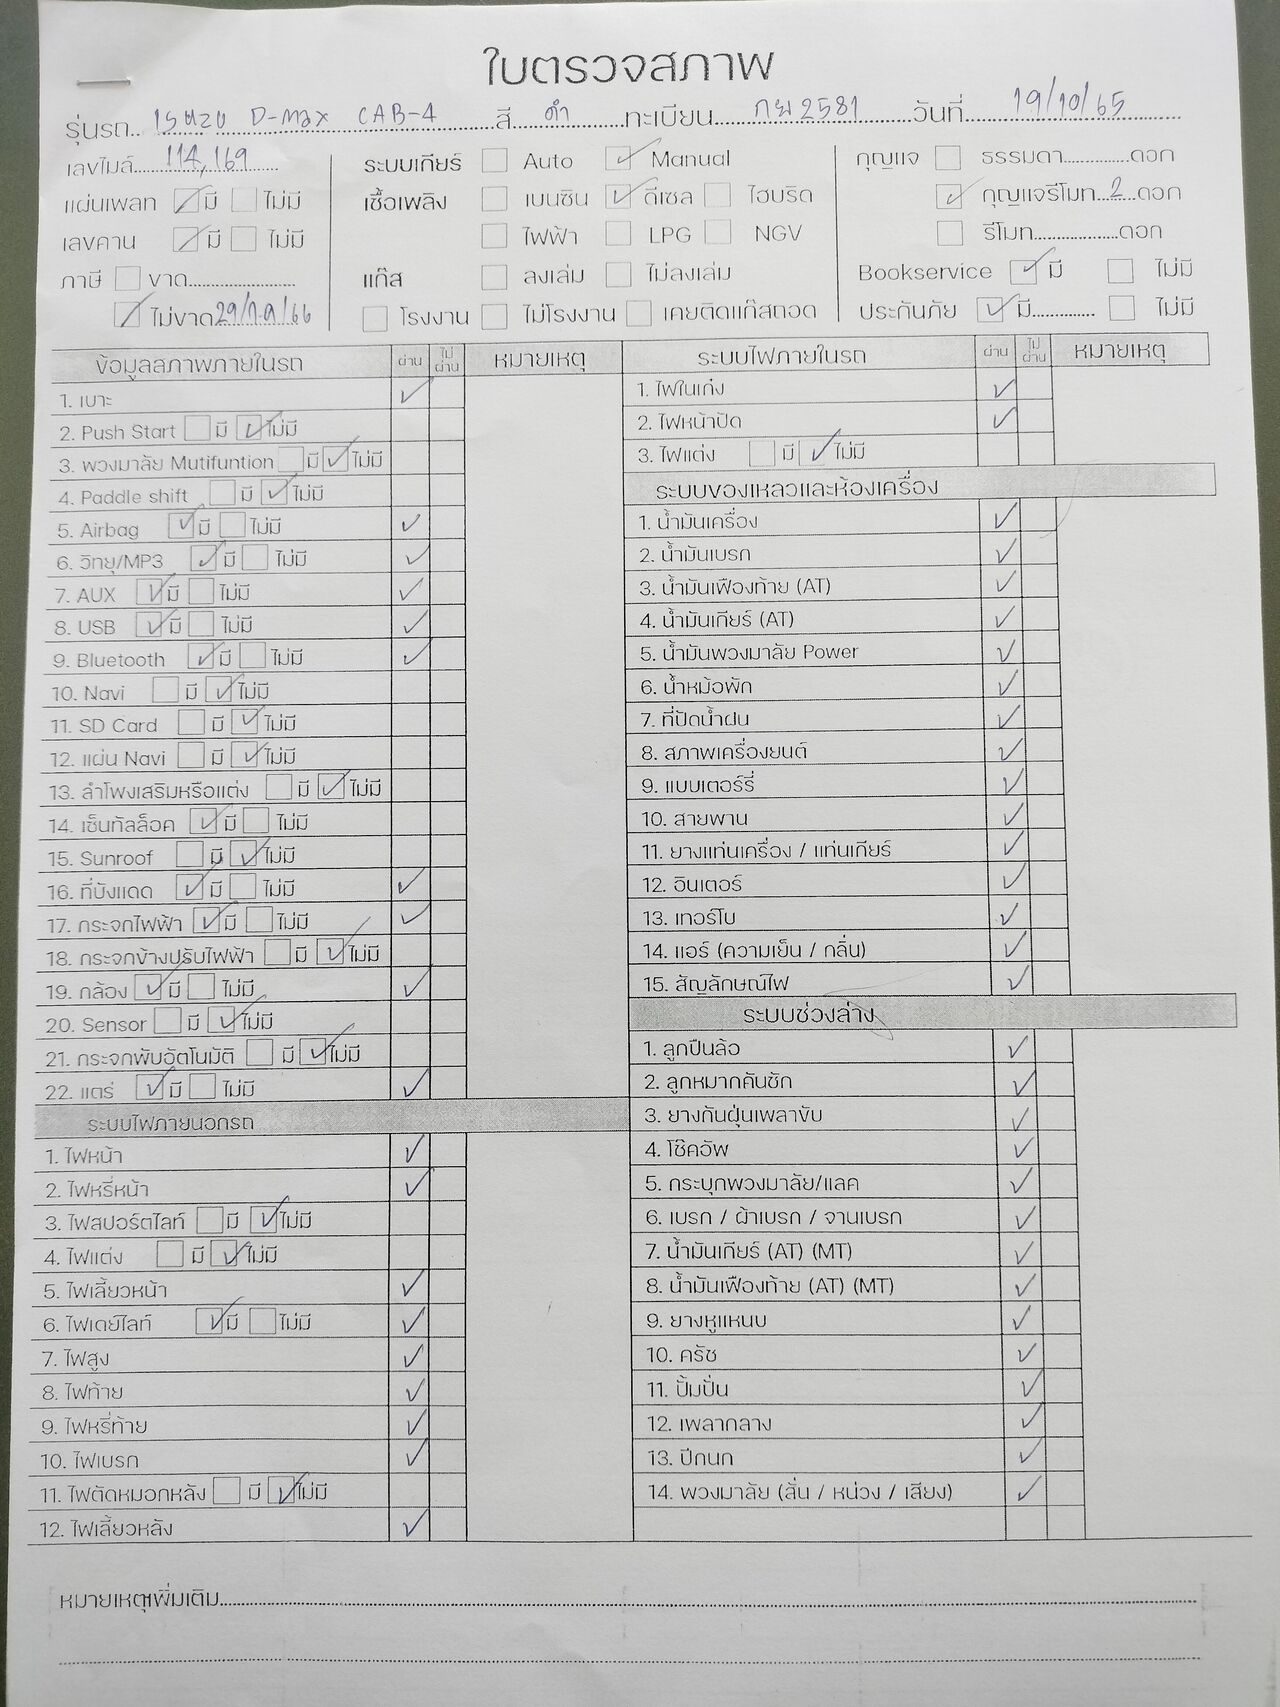 ใบตรวจสภาพ
รุ่นรถ.. Isuzu D-max CAB-4 สี ดำ ทะเบียน กผ 2581 วันที่ 19/10/65
เลขไมล์ 114,169 ระบบเกียร์ Auto Manual กุญแจ ธรรมดา ดอก
แผ่นเพลท มี ไม่มี เชื้อเพลิง เบนซิน ดีเซล ไฮบริด กุญแจรีโมท 2 ดอก
เลขคาน มี ไม่มี ไฟฟ้า LPG NGV รีโมท ดอก
ภาษี ขาด แก๊ส ลงเล่ม ไม่ลงเล่ม Bookservice มี ไม่มี
ไม่ขาด โรงงาน ไม่โรงงาน เคยติดแก๊สถอด ประกันภัย มี ไม่มี
ข้อมูลสภาพภายในรถ ผ่าน ไม่ผ่าน หมายเหตุ
1. เบาะ
2. Push Start มี ไม่มี
3. พวงมาลัย Mutifuntion มี ไม่มี
4. Paddle shift มี ไม่มี
5. Airbag มี ไม่มี
6. วิทยุ/MP3 มี ไม่มี
7. AUX มี ไม่มี
8. USB มี ไม่มี
9. Bluetooth มี ไม่มี
10. Navi มี ไม่มี
11. SD Card มี ไม่มี
12. แผ่น Navi มี ไม่มี
13. ลำโพงเสริมหรือแต่ง มี ไม่มี
14. เซ็นทัลล็อค มี ไม่มี
15. Sunroof มี ไม่มี
16. ที่บังแดด มี ไม่มี
17. กระจกไฟฟ้า มี ไม่มี
18. กระจกข้างปรับไฟฟ้า มี ไม่มี
19. กล้อง มี ไม่มี
20. Sensor มี ไม่มี
21. กระจกพับอัตโนมัติ มี ไม่มี
22. แตร่ มี ไม่มี
ระบบไฟภายนอกรถ
1. ไฟหน้า
2. ไฟหรี่หน้า
3. ไฟสปอร์ตไลท์ มี ไม่มี
4. ไฟแต่ง มี ไม่มี
5. ไฟเลี้ยวหน้า
6. ไฟเดย์ไลท์ มี ไม่มี
7. ไฟสูง
8. ไฟท้าย
9. ไฟหรี่ท้าย
10. ไฟเบรก
11. ไฟตัดหมอกหลัง มี ไม่มี
12. ไฟเลี้ยวหลัง
ระบบไฟภายในรถ ผ่าน ไม่ผ่าน หมายเหตุ
1. ไฟในเก๋ง
2. ไฟหน้าปัด
3. ไฟแต่ง มี ไม่มี
ระบบของเหลวและห้องเครื่อง
1. น้ำมันเครื่อง
2. น้ำมันเบรก
3. น้ำมันเฟืองท้าย (AT)
4. น้ำมันเกียร์ (AT)
5. น้ำมันพวงมาลัย Power
6. น้ำหม้อพัก
7. ที่ปัดน้ำฝน
8. สภาพเครื่องยนต์
9. แบบเตอร์รี่
10. สายพาน
11. ยางแท่นเครื่อง / แท่นเกียร์
12. อินเตอร์
13. เทอร์โบ
14. แอร์ (ความเย็น / กลิ่น)
15. สัญลักษณ์ไฟ
ระบบช่วงล่าง
1. ลูกปืนล้อ
2. ลูกหมากคันชัก
3. ยางกันฝุ่นเพลาขับ
4. โช๊คอัพ
5. กระบุกพวงมาลัย/แลค
6. เบรก / ผ้าเบรก / จานเบรก
7. น้ำมันเกียร์ (AT) (MT)
8. น้ำมันเฟืองท้าย (AT) (MT)
9. ยางหูแหนบ
10. ครัช
11. ปั้มปั่น
12. เพลากลาง
13. ปีกนก
14. พวงมาลัย (สั่น / หน่วง / เสียง)
หมายเหตุเพิ่มเติม